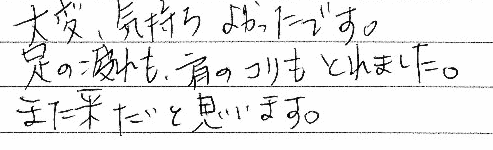 大変、気持ちよかったです。
足の疲れも、肩のコリもとれました。
また来たいと思います。